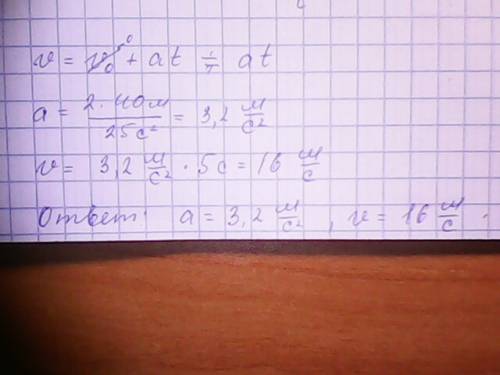 v = v₀⁰ + at = at
a = 2·40м / 25с² = 3,2 м/с²
v = 3,2 м/с² · 5с = 16 м/с
Ответ: a = 3,2 м/с², v = 16 м/с.